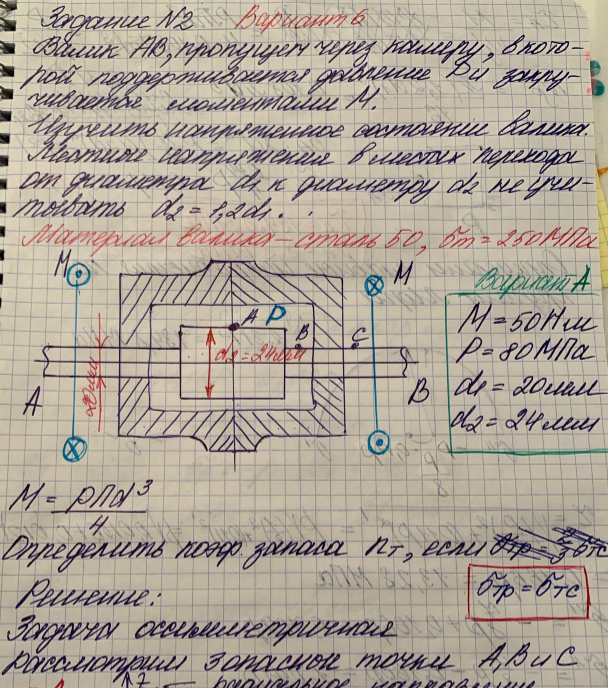 Задание N2 Вариант 6
Валик АВ, пропущен через камеру, в кото-
рой поддерживается давление Р и закру-
чивается моментами М.
Изучить напряженное состояние валика.
Местные напряжения в местах перехода
от диаметра d1 к диаметру d2 не учи-
тывать d2 = 1,2d1.
Материал валика – сталь 50, σт = 250 МПа
М М Вариант А
А Р
В С
d2 = 24мм
20мм
А В
М = 50 Нм
Р = 80 МПа
d1 = 20 мм
d2 = 24 мм
М = pПd³/4
Определить коэф. запаса nт, если
σтр = σтс
Решение:
Задача осимметричная
Рассмотрим 3 опасные точки А, В и С